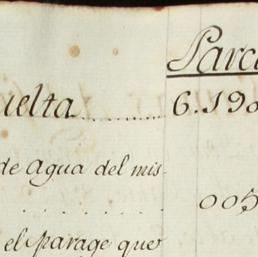 Parc
uelta........ 6.190
de agua del mis-
........ 005
el parage que